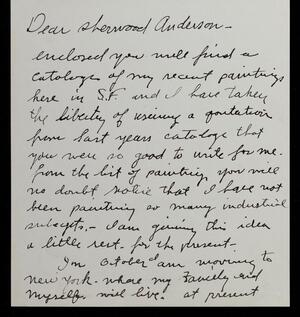 Dear Sherwood Anderson -
enclosed you will find a
cataloge of my recent paintings
here in S.F. and I have taken
the liberty of useing a quotation
from last years cataloge that
you were so good to write for me.
from the list of paintings you will
no doubt notice that I have not
been painting so many industrial
subjects - I am giving this idea
a little rest - for the present -
In October I am moveing to
new York - where my Family and
Myself will live! at present